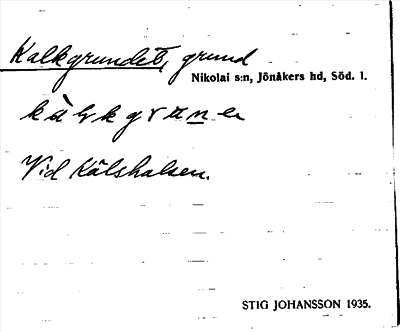 Kalkgrundet, grund
Nikolai s:n, Jönåkers hd, Söd. l.
Vid Kälshalsen.
STIG JOHANSSON 1935.